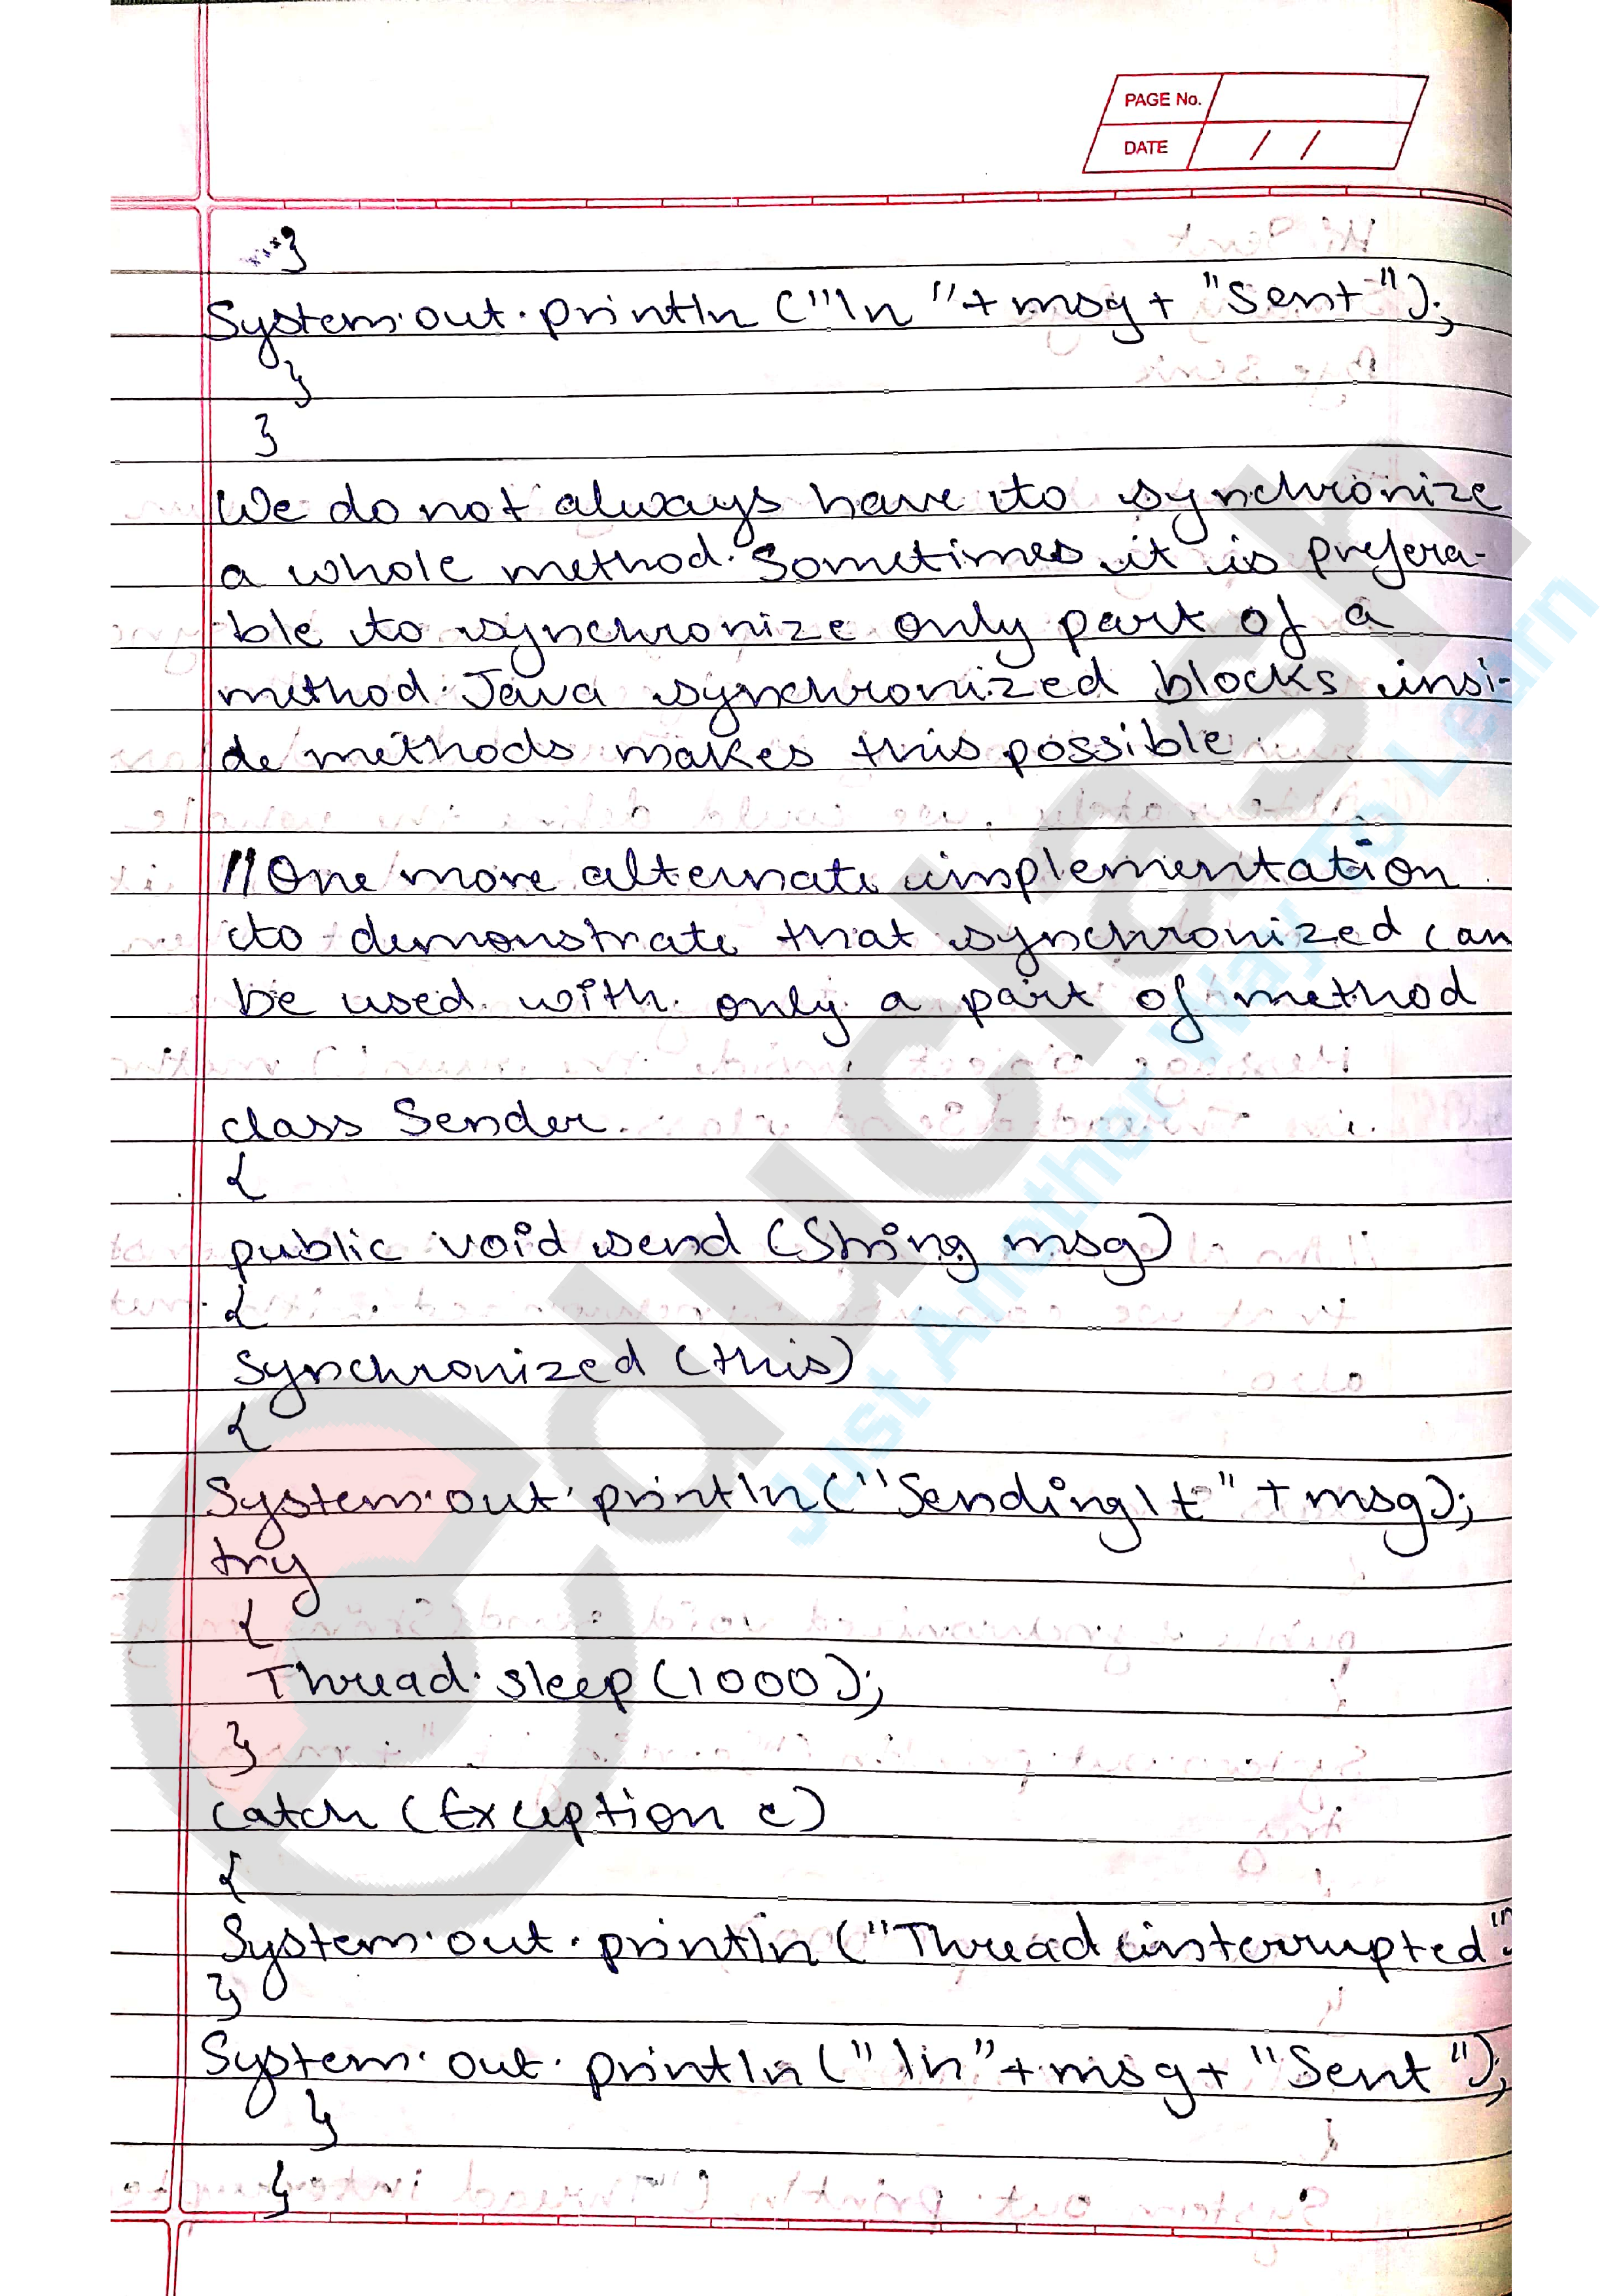 PAGE No.
DATE / /
}
System.out.println ("\n "+ msg + "Sent");
}
}
We do not always have to synchronize
a whole method. Sometimes it is prefera-
ble to synchronize only part of a
method. Java synchronized blocks insi-
de methods makes this possible.
//One more alternate implementation
to demonstrate that synchronized can
be used with only a part of method
class Sender
{
public void send (String msg)
{
Synchronized (this)
{
System.out.println ("Sending\t" + msg);
try
{
Thread.sleep (1000);
}
catch (Exception e)
{
System.out.println ("Thread interrupted"
}
System.out.println ("\n"+msg+ "Sent");
}
}
educlash
Just Another Way To Learn